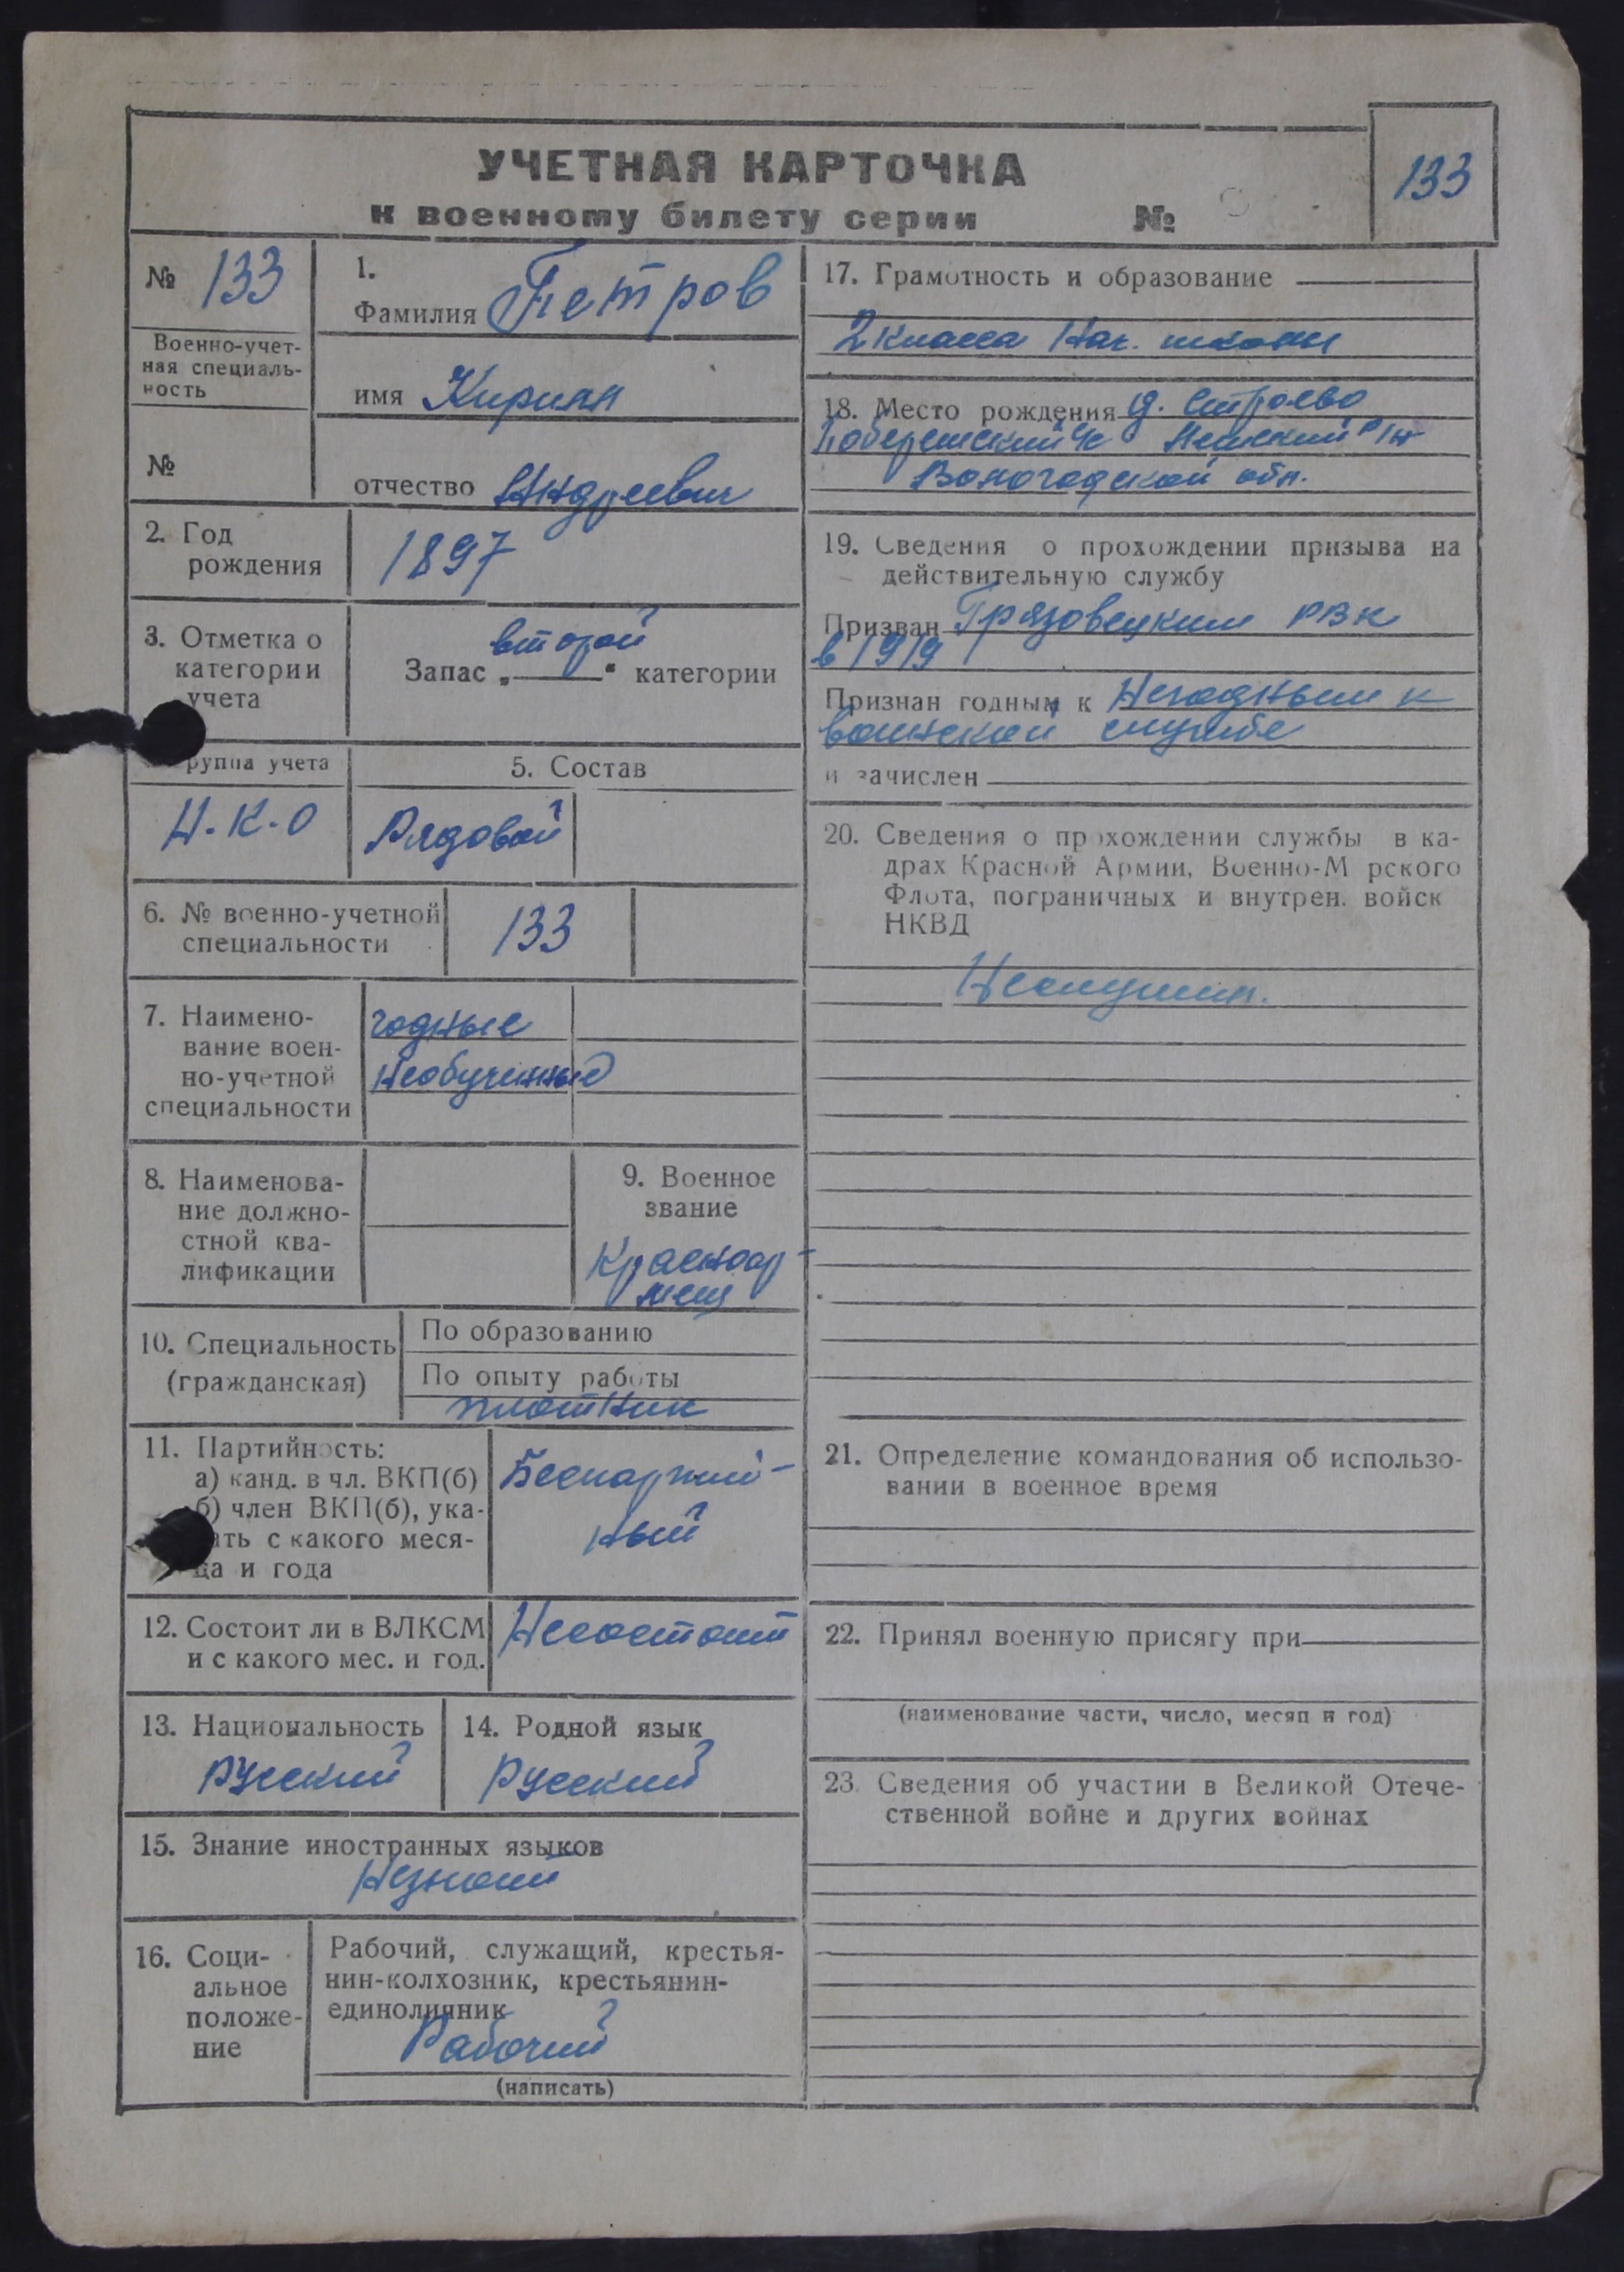 УЧЕТНАЯ КАРТОЧКА
к военному билету серии №
133
№ 133
Военно-учет-
ная специаль-
ность
№
1.
Фамилия Петров
имя Кирилл
отчество Андреевич
2. Год
рождения
1897
3. Отметка о
категории
учета
Запас „второй“ категории
руппа учета
Н.К.О
5. Состав
Рядовой
6. № военно-учетной
специальности
133
7. Наимено-
вание воен-
но-учетной
специальности
годные
необученные
8. Наименова-
ние должно-
стной ква-
лификации
9. Военное
звание
Красноар-
меец
10. Специальность
(гражданская)
По образованию
По опыту работы
плотник
11. Партийность:
а) канд. в чл. ВКП(б)
б) член ВКП(б), ука-
ать с какого меся-
ца и года
Беспартий-
ный
12. Состоит ли в ВЛКСМ
и с какого мес. и год.
Несостоит
13. Национальность
Русский
14. Родной язык
Русский
15. Знание иностранных языков
Незнает
16. Соци-
альное
положе-
ние
Рабочий, служащий, крестья-
нин-колхозник, крестьянин-
единоличник
Рабочий
(написать)
17. Грамотность и образование
2 класса Нач. школы
18. Место рождения д.
с/с р/н
Вологодской обл.
19. Сведения о прохождении призыва на
действительную службу
Призван Грязовецким РВК
в 1919
Признан годным к Негодным к
воинской службе
и зачислен
20. Сведения о прохождении службы в ка-
драх Красной Армии, Военно-М рского
Флота, пограничных и внутрен. войск
НКВД
Неслужил.
21. Определение командования об использо-
вании в военное время
22. Принял военную присягу при
(наименование части, число, месяц и год)
23. Сведения об участии в Великой Отече-
ственной войне и других войнах